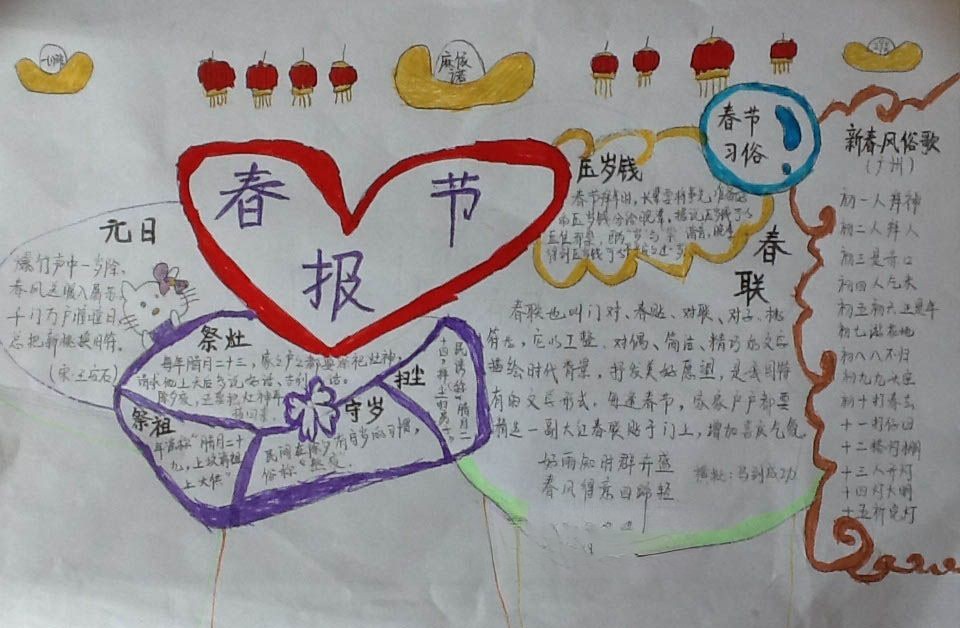 麻依诺
春节报
春节
习俗
元日
爆竹声中一岁除,
春风送暖入屠苏
千门万户曈曈日
总把新桃换旧符。
(宋·王安石)
祭灶
每年腊月二十三,家家户户都要祭祀灶神,
祭祖
年谣称“腊月二十
九,上坟请祖
上大供”
扫尘
民谣称“腊月二
十四,掸尘扫房子”
守岁
民间在除夕有守岁的习惯,
俗称“熬夜
压岁钱
春节拜年时,长辈要将事先准备好
的压岁钱分给晚辈,据说压岁钱可以
压住邪祟,因为“岁”与“祟”谐音,晚辈
得到压岁钱可以平平安安过一岁
春联
春联也叫门对、春贴、对联、对子,桃
符等,它以工整、对偶、简洁、精巧的文字
描绘时代背景,抒发美好愿望,是我国特
有的文学形式,每逢春节,家家户户都要
精选一副大红春联贴于门上,增加喜庆气氛
好雨知时群卉盛
春风得意四蹄轻
横批:马到成功
新春风俗歌
(广州)
初一人拜神
初二人拜人
初三是赤口
初四人乞米
初五初六正是年
初七
初八八不归
初九九
初十打春去
十一打仔回
十二搭灯棚
十三人开灯
十四灯火明
十五祈完灯